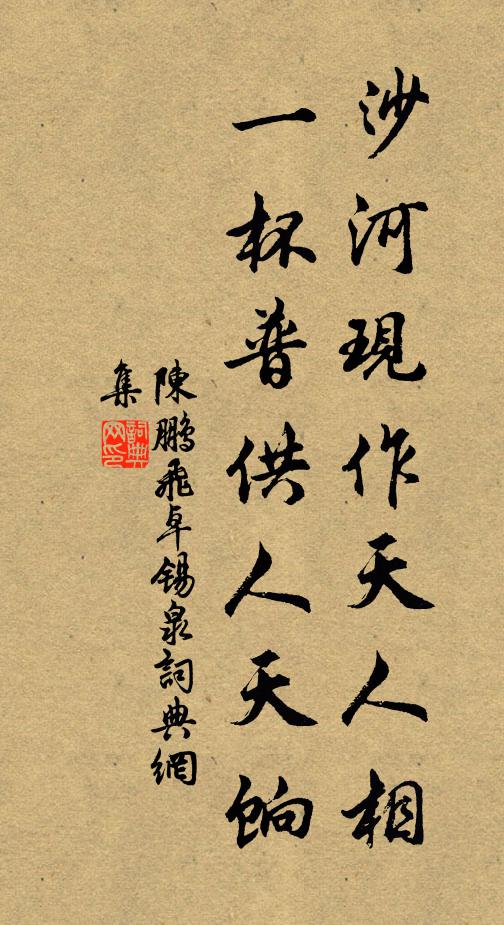 沙河現作天人相
一杯普供人天餉
陳鵬飛卓錫泉詞典網
集
詞典網印